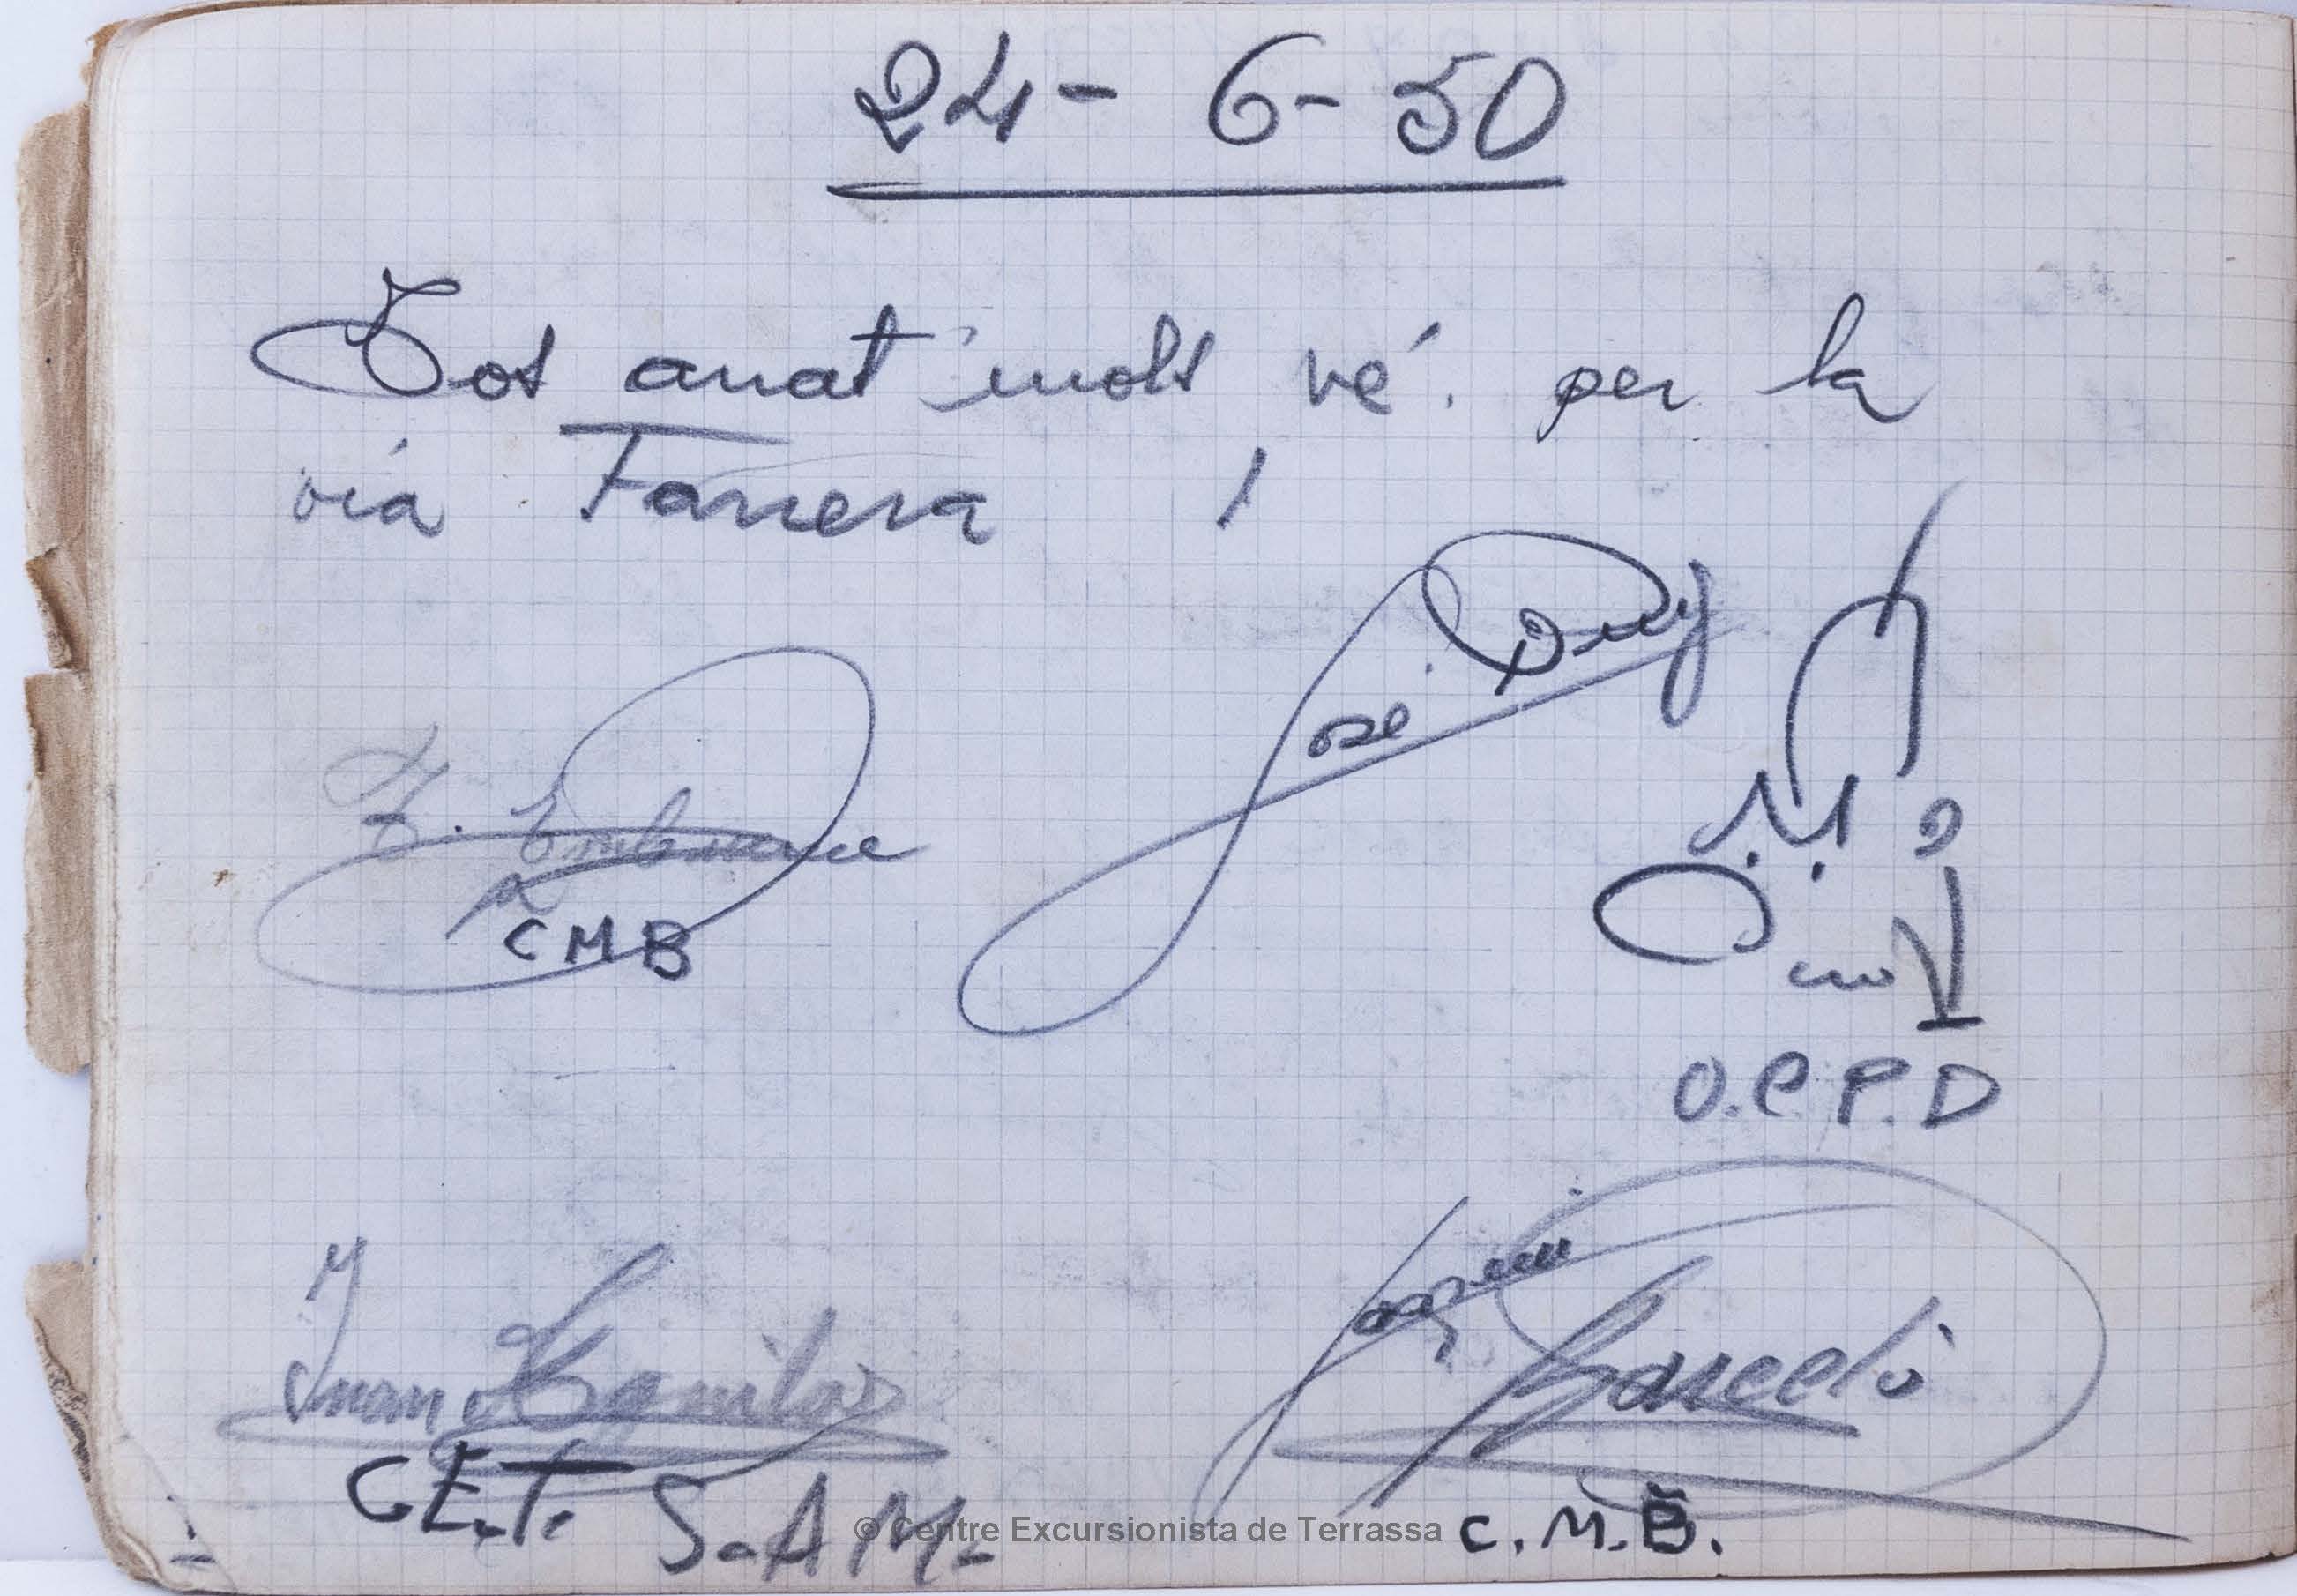 24- 6- 50
Tot anat molt vé. per la
via Farrera !
José Puig
CMB
O.C.P.D
Juan Aguilar
C.E.T. S.A.M.
Joaquin Barceló
C.M.B.
© Centre Excursionista de Terrassa